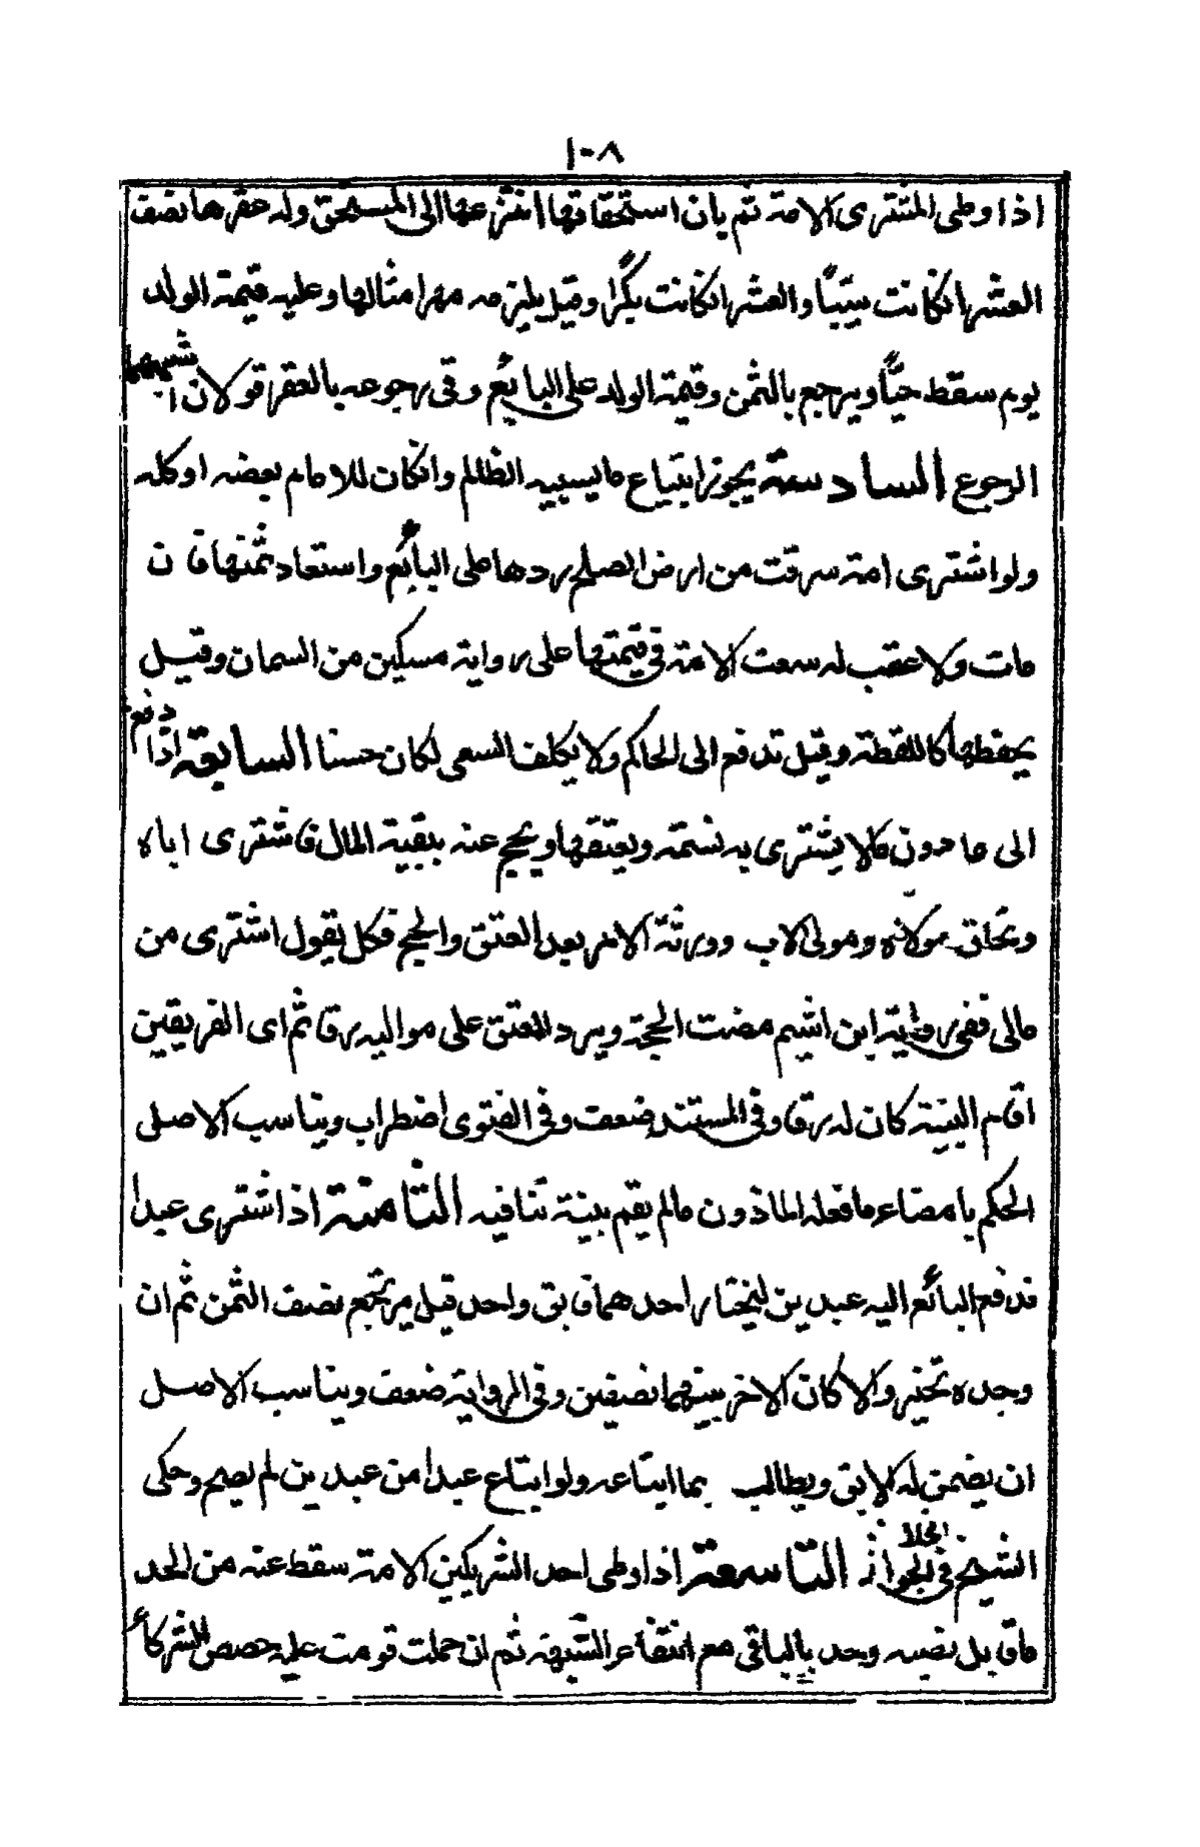 ١٠٨
اذا وطى المشترى الامة ثم بان استحقاقها انتزعها المستحق وله عقرها نصف
العشر ان كانت ثيبًا والعشر ان كانت بكرًا وقيل يلزمه مهر امثالها وعليه قيمة الولد
يوم سقط حيًّا ويرجع بالثمن وقيمة الولد على البائع وفى رجوعه بالعقر قولان اشبههما
الرجوع السادسة يجوز ابتياع ما يسبيه الظالم وان كان للامام بعضه او كله
ولو اشترى امة سرقت من ارض الصلح ردها على البائع واستعاد ثمنها فان
مات ولا عقب له سعت الامة فى قيمتها على رواية مسكين من السمان وقيل
يحفظها كاللقطة وقيل تدفع الى الحاكم ولا يكلف السعى لكان حسنا السابعة اذا دفع
الى ماذون مالا يشترى به نسمة ويعتقها ويحج عنه ببقية المال فاشترى اباه
وتحاق مولاه ومولى الاب وورثة الامر بعد العتق والحج فكل يقول اشترى من
مالى ففى رواية ابن اشيم مضت الحجة ويرد المعتق على مواليه رقا ثم اى الفريقين
اقام البينة كان له رقا وفى المستند ضعف وفى الفتوى اضطراب ويناسب الاصلى
الحكم بامضاء ما فعله الماذون مالم يقم بينة تنافيه الثامنة اذا اشترى عبدا
فدفع البائع اليه عبدين ليختار احدهما فابق واحد قيل يرتجع نصف الثمن ثم ان
وجده تخير والا كان الاخر بينهما نصفين وفى الرواية ضعف ويناسب الاصل
ان يضمن له الابق ويطالب بما ابتاعه ولو ابتاع عبدا من عبدين لم يصح وحكى
الشيخ فى الخلا الجواز التاسعة اذا وطى احد الشريكين الامة سقط عنه من الحد
ما قابل نصيبه وحد بالباقى مع انتفاء الشبهة ثم ان حملت قومت عليه حصص الشركاء